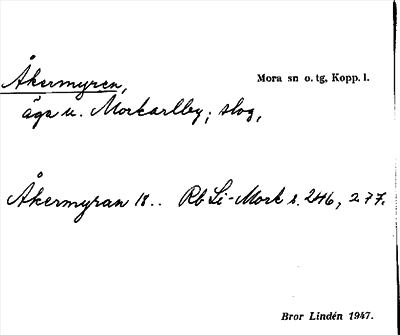 Åkermyren,
Mora sn o. tg, Kopp. l.
äga u. Morkarlby; slog,
Åkermyran 18.. Rb Li-Mork s. 246, 277.
Bror Lindén 1947.